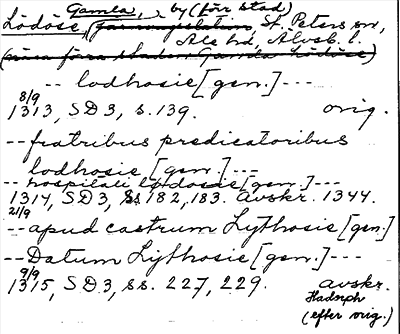 Gamla, by (förr stad)
Lödöse, St. Peters sn,
Ale hd, Älvsb. l.
-- lodhosie [gen.] ---
8/9
1313, SD3, s. 139. orig.
-- fratribus predicatoribus
lodhosie [gen.] ---
-- hospitali lodosie [gen.] ---
1314, SD3, ss 182, 183. Avskr. 1344.
21/9
-- apud castrum Lythosie [gen.]
-- Datum Lythosie [gen.] ---
9/9
1315, SD3, ss. 227, 229. avskr.
Hadorph
(efter orig.)